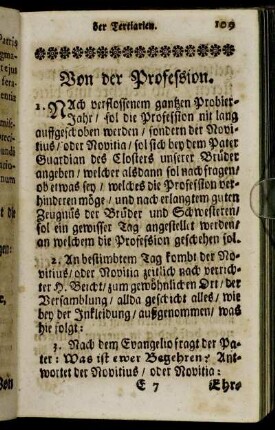 der Tertiarien. 109
Von der Profession.
1. Nach verflossenem gantzen Probier-
Jahr / sol die Profession nit lang
auffgeschoben werden / sondern der Novi-
tius / oder Novitia / sol sich bey dem Pater
Guardian des Closters unserer Brüder
angeben / welcher alsdann sol nachfragen /
ob etwas sey / welches die Profession ver-
hinderen möge / und nach erlangtem guten
Zeugnüs der Brüder und Schwesteren /
sol ein gewisser Tag angestellt werden /
an welchem die Profession geschehen sol.
2. An bestimbtem Tag kombt der No-
vitius / oder Novitia zeitlich nach verrich-
ter H. Beicht / zum gewöhnlichen Ort / der
Versamblung / allda geschicht alles / wie
bey der Inkleidung / außgenommen / was
hie folgt:
3. Nach dem Evangelio fragt der Pa-
ter: Was ist ewer Begehren? Ant-
wortet der Novitius / oder Novitia:
E 7 Ehr-